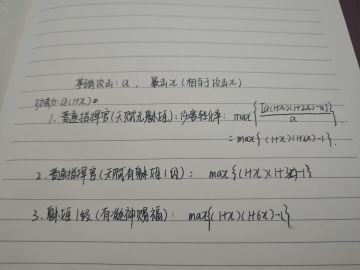 基础攻击:a, 暴击x(相当于攻击x)
功击力:a(1+x)。
1.普通指挥官(天赋无魅魔):伤害转化率:max{[a(1+x)(1+2x)-a]/a}
=max{(1+x)(1+2x)-1}.
2.普通指挥官(天赋有魅魔1级): max{(1+x)(1+3x)-1}
3.魅魔1级(有 赐福): max{(1+x)(1+6x)-1}